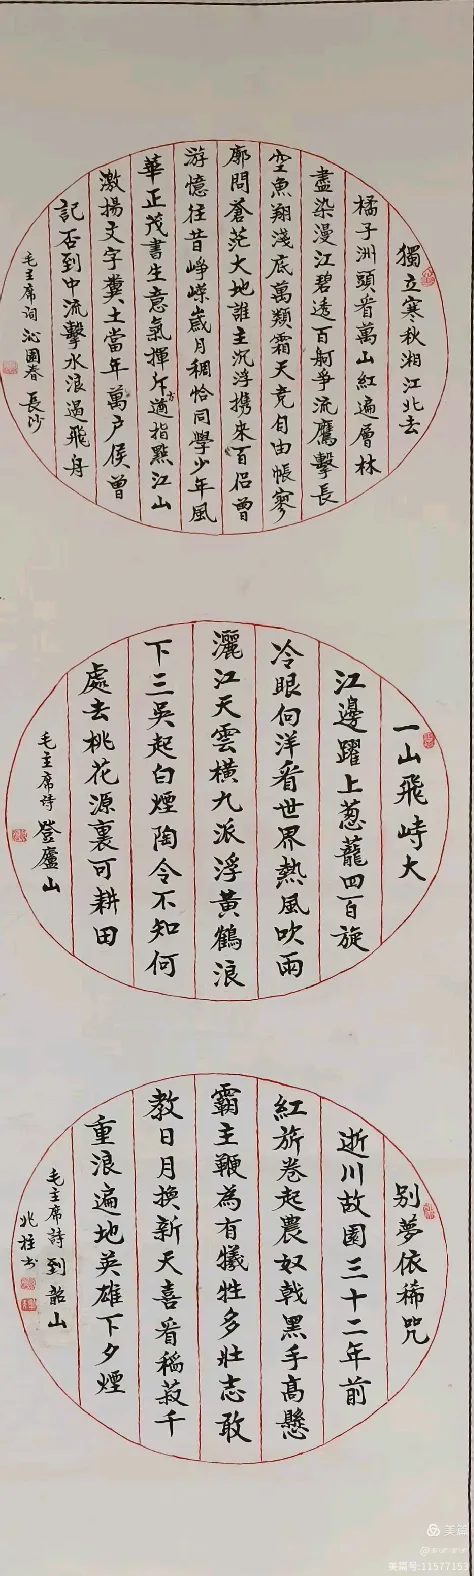 獨立寒秋湘江北去
橘子洲頭看萬山紅遍層林
盡染漫江碧透百舸爭流鷹擊長
空魚翔淺底萬類霜天竞自由悵寥
廓問蒼茫大地誰主沉浮携来百侣曾
游憶往昔崢嶸歲月稠恰同學少年風
華正茂書生意氣揮斥方遒指點江山
激揚文字糞土當年萬户侯曾
記否到中流擊水浪遏飛舟
毛主席词 沁園春 長沙
一山飛峙大
江邊躍上葱蘢四百旋
冷眼向洋看世界熱風吹雨
灑江天雲橫九派浮黃鶴浪
下三吳起白煙陶令不知何
處去桃花源裏可耕田
毛主席诗 登廬山
别夢依稀咒
逝川故園三十二年前
紅旂卷起農奴戟黑手高懸
霸主鞭為有犧牲多壯志敢
教日月換新天喜看稻菽千
重浪遍地英雄下夕煙
毛主席詩 到韶山
兆柱书
美篇
美篇号:11577153